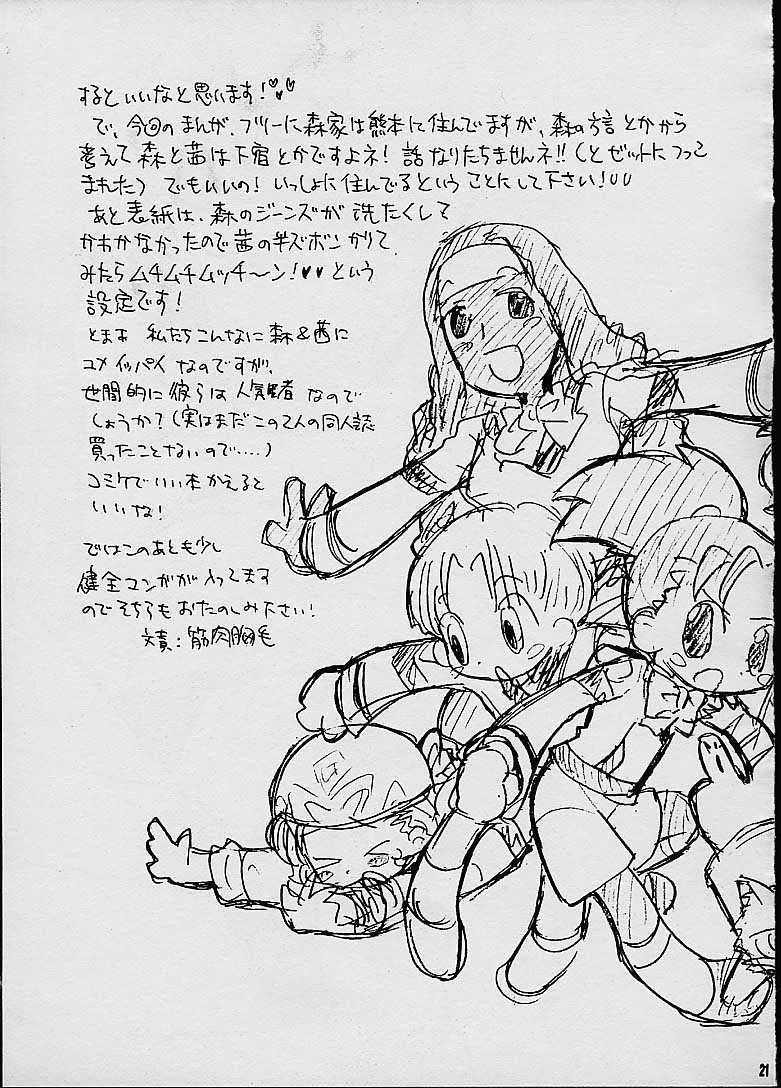 するといいなと思います!♥♥
で、今回のまんが、フツーに森家は熊本に住んでますが、森の方言とかから
考えて森と茜は下宿とかですよネ! 話なりたちませんネ!!(とゼットにつっこ
まれた) でもいいの! いっしょに住んでるということにして下さい!
あと表紙は、森のジーンズが洗たくして
かわかなかったので茜の半ズボンかりて
みたらムチムチムッチ〜ン!♥♥という
設定です!
とまぁ 私たちこんなに森&茜に
ユメイッパイなのですが、
世間的に彼らは人気者なので
しょうか?(実はまだこの2人の同人誌
買ったことないので.....)
コミケでいい本かえると
いいな!
ではこのあとも少し
健全マンガが入ってます
のでそちらもおたのしみ下さい!
文責:筋肉胸毛
は
21